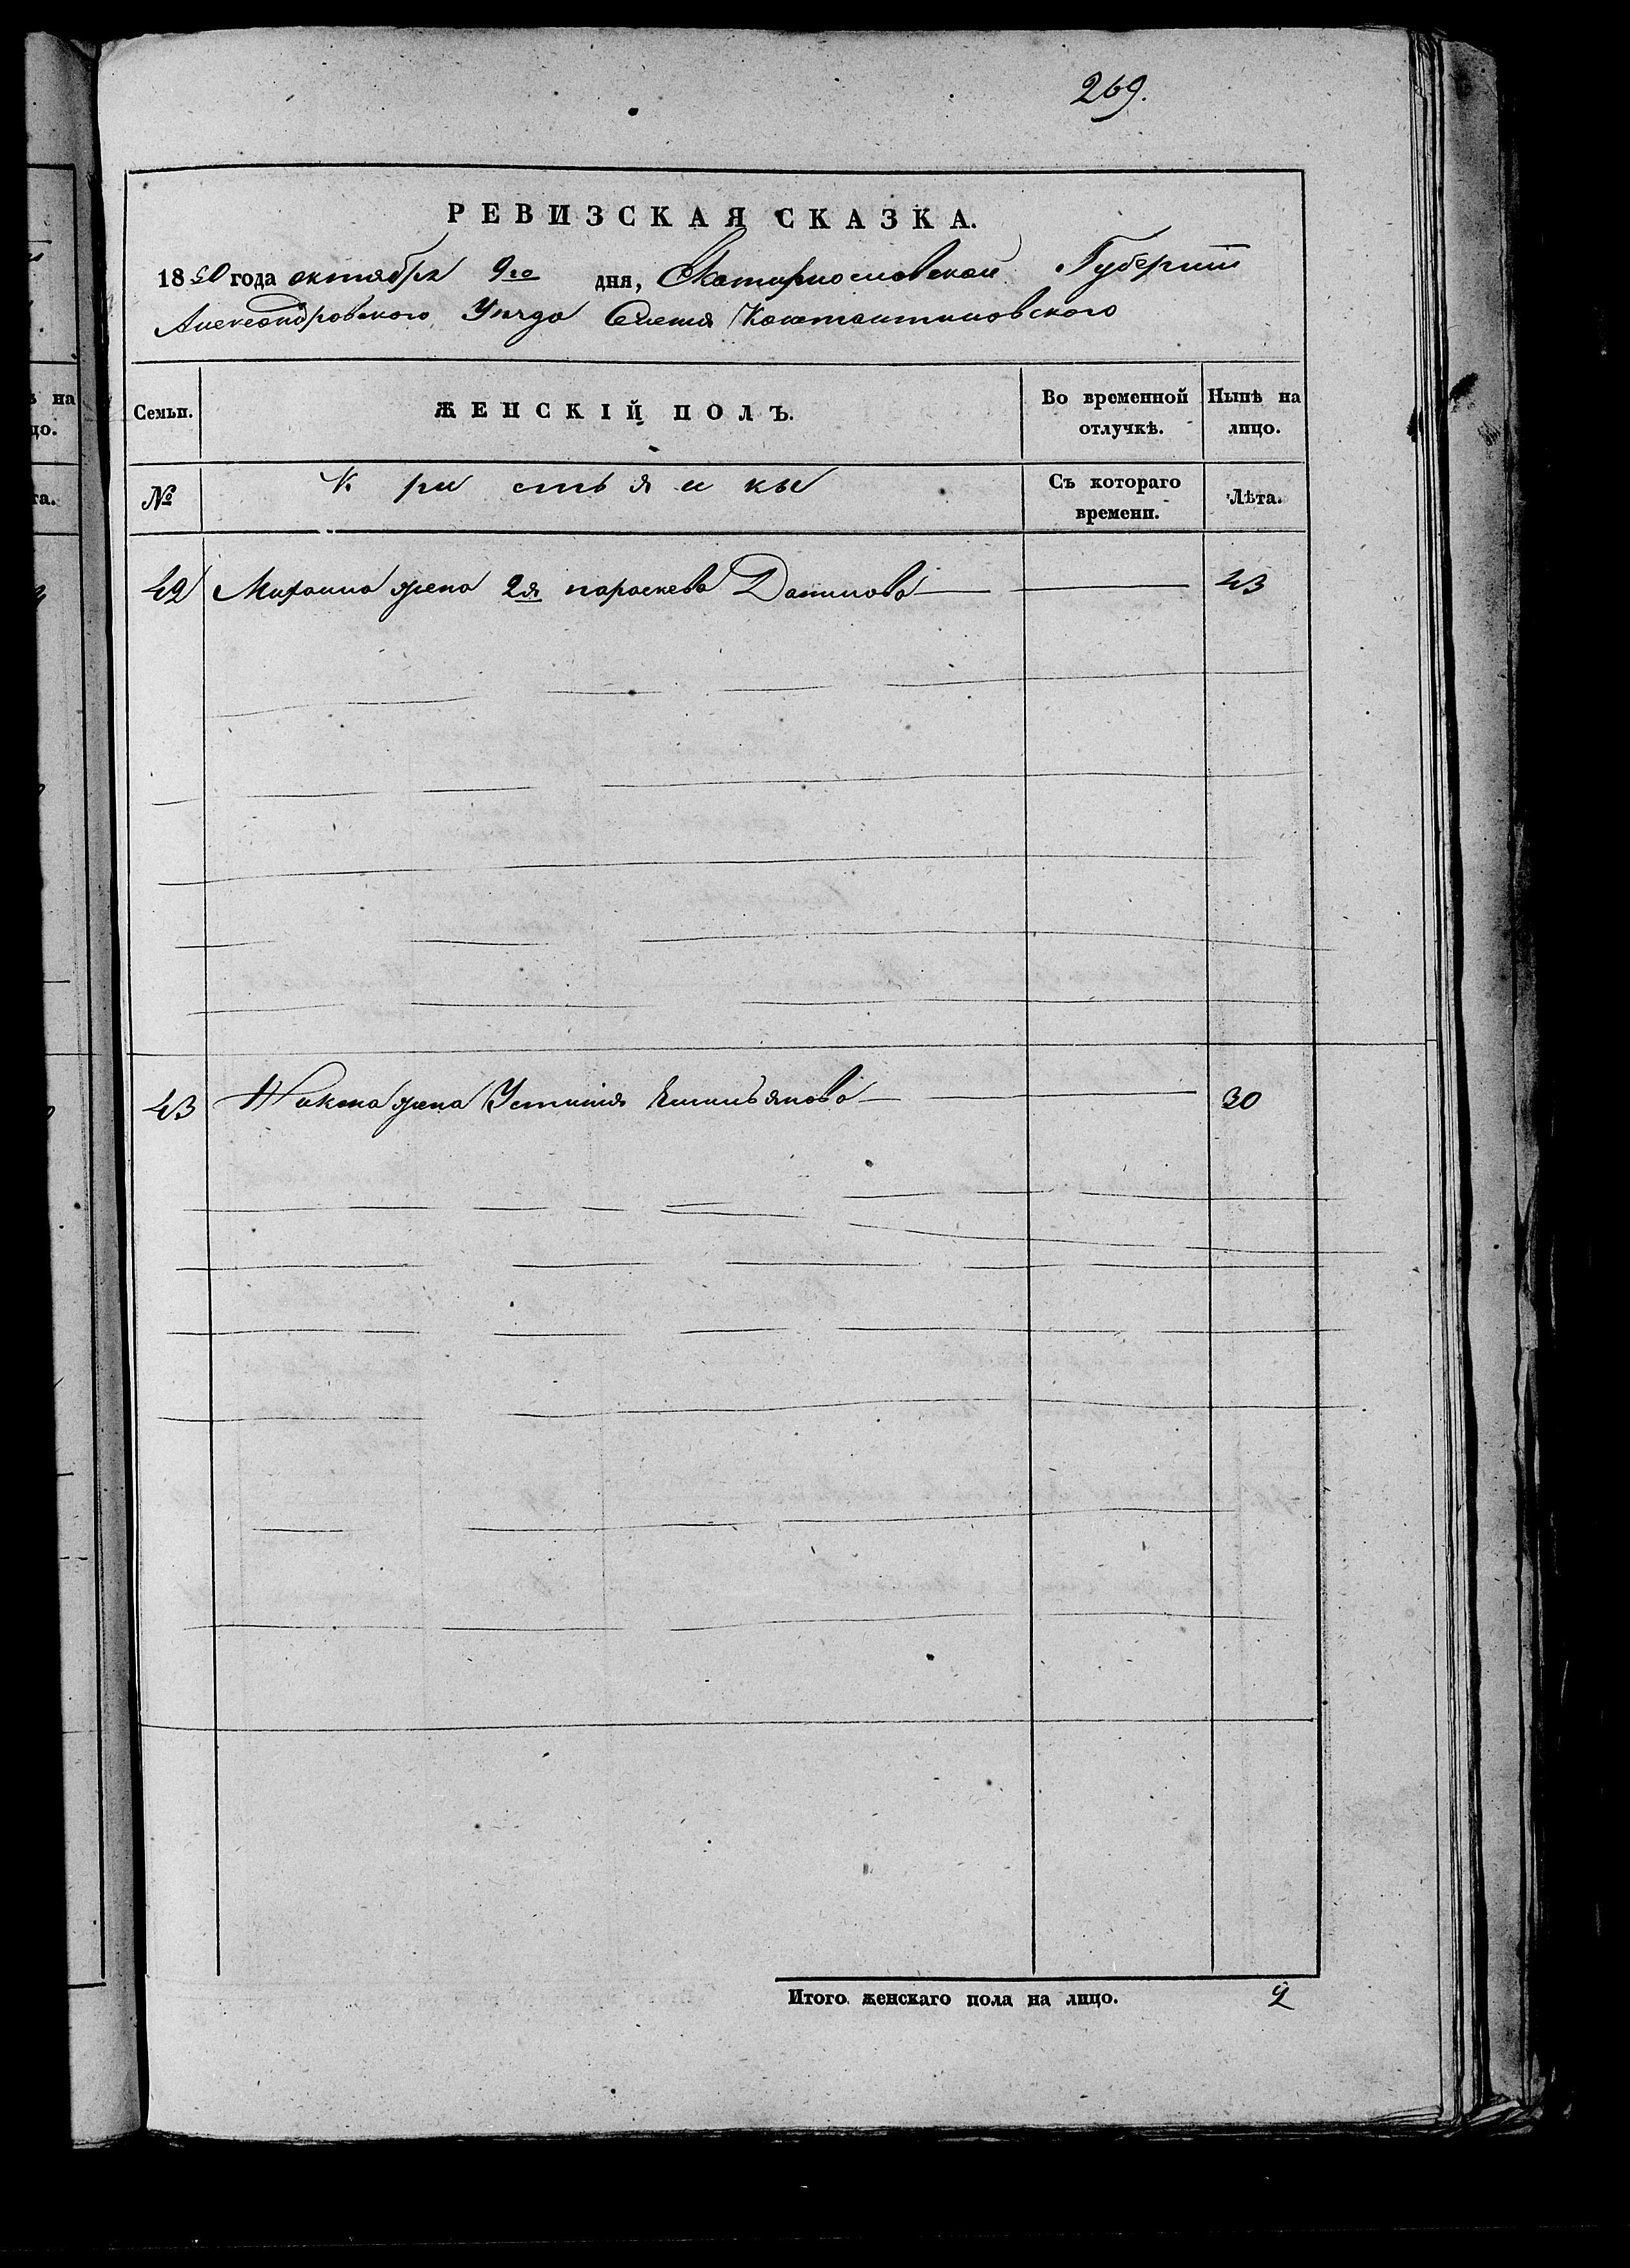 269.
РЕВИЗСКАЯ СКАЗКА.
1850 года октября 9го дня, Екатеринославской Губернии
Александровского Уезда Селения Константиновского
Семьи.
ЖЕНСКІЙ ПОЛЪ.
Во временной отлучкѣ.
Нынѣ на лицо.
№
Кристьянкы
Съ котораго времени.
Лѣта.
42 Михаила жена 2я параскева Данилова 43
43 жена Устиния Емильянова 30
Итого женскаго пола на лицо. 2